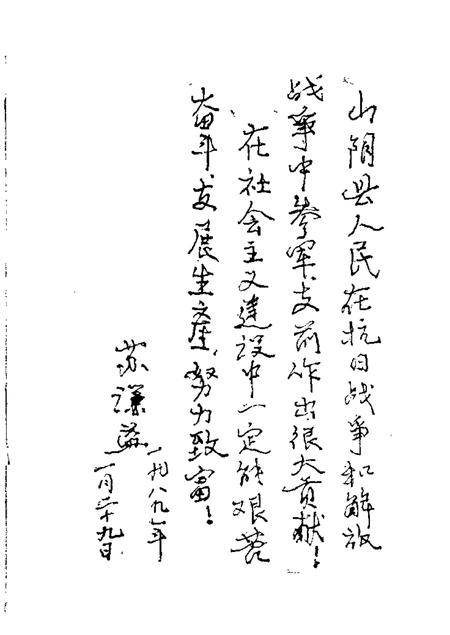 山阴县人民在抗日战争和解放
战争中参军、支前作出很大贡献！
在社会主义建设中一定能艰苦
奋斗、发展生产、努力致富！
苏谦益
一九八九年
一月二十九日